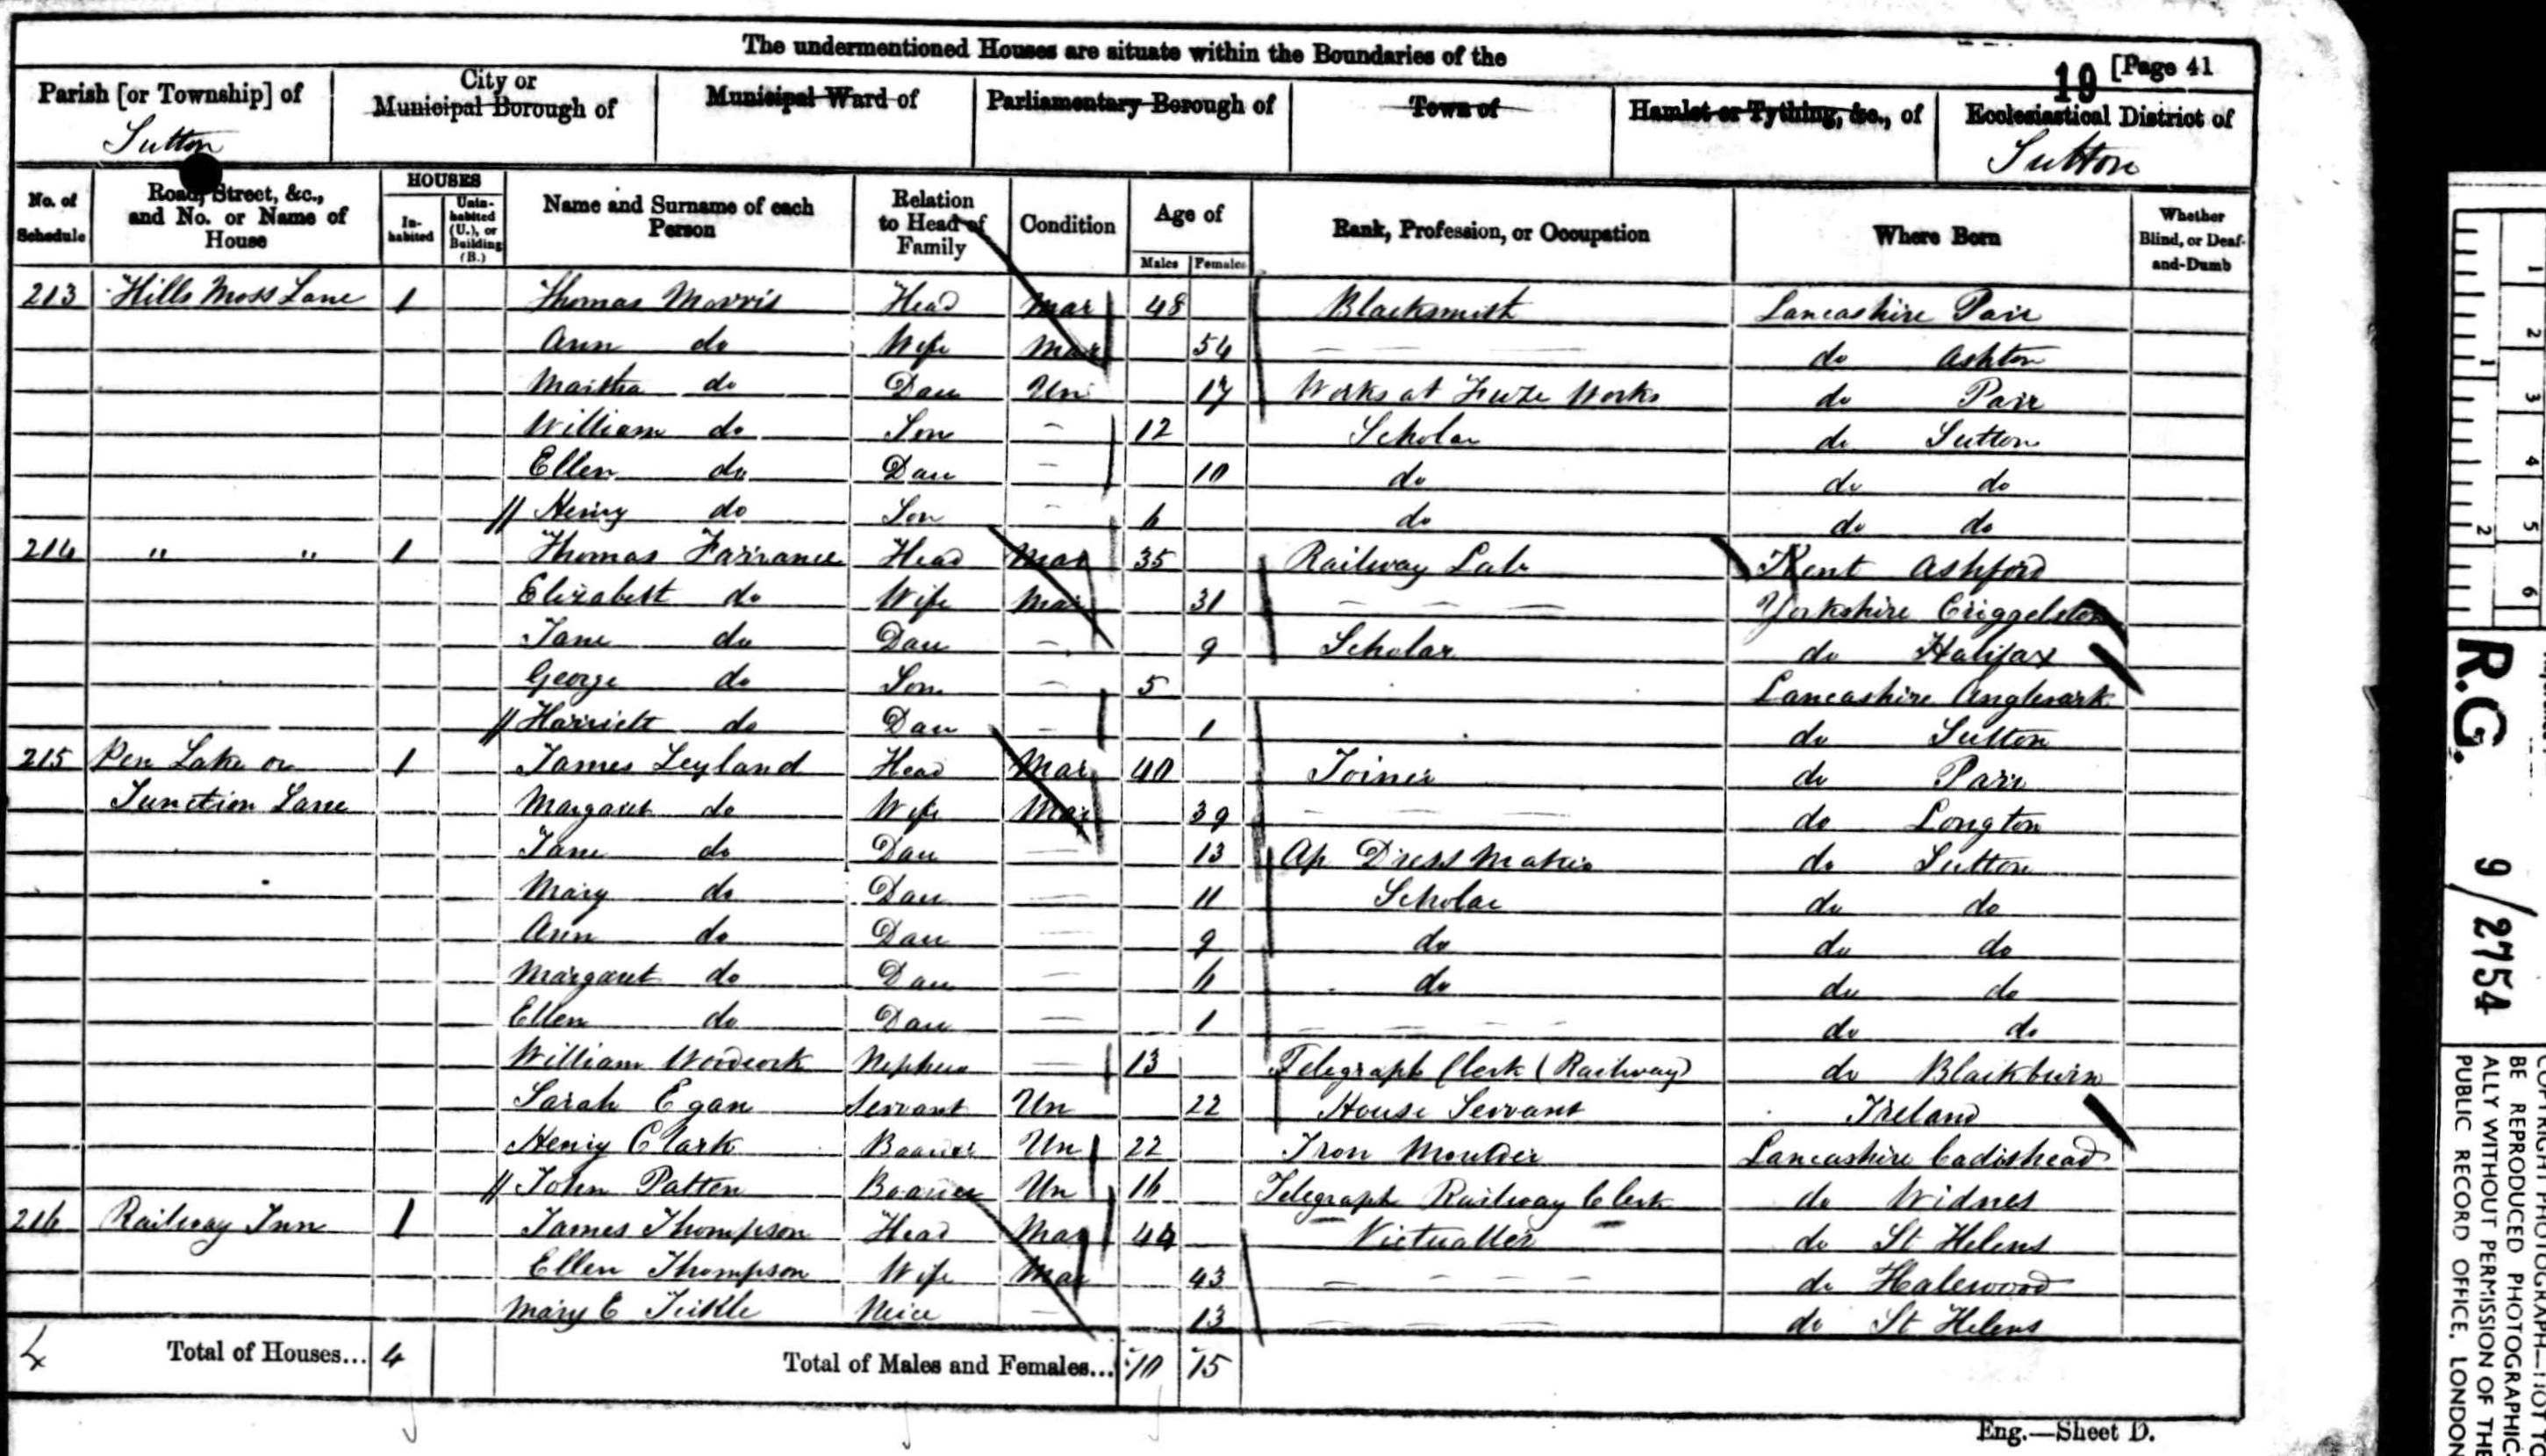 The undermentioned Houses are situate within the Boundaries of the
19 [Page 41
Parish [or Township] of City or Municipal Borough of Municipal Ward of Parliamentary Borough of Town of Hamlet or Tything, &c., of Ecclesiastical District of
Sutton Sutton
No. of Schedule Road, Street, &c., and No. or Name of House HOUSES Inhabited Uninhabited (U.), or Building (B.) Name and Surname of each Person Relation to Head of Family Condition Age of Males Females Rank, Profession, or Occupation Where Born Whether Blind, or Deaf-and-Dumb
213 Hills Moss Lane 1 Thomas Morris Head Mar 48 Blacksmith Lancashire Parr
Ann do Wife Mar 54 — — — do Ashton
Martha do Dau Un 17 Works at Fuze Works do Parr
William do Son - 12 Scholar do Sutton
Ellen do Dau - 10 do do do
// Henry do Son - 6 do do do
214 " " 1 Thomas Farrance Head Mar 35 Railway Lab Kent Ashford
Elizabeth do Wife Mar 31 — — — Yorkshire Criggelston
Jane do Dau - 9 Scholar do Halifax
George do Son - 5 Lancashire Anglezark
// Harriett do Dau - 1 do Sutton
215 Pen Lake or 1 James Leyland Head Mar 40 Joiner do Parr
Junction Lane Margaret do Wife Mar 39 — — — do Longton
Jane do Dau — 13 Ap Dress Maker do Sutton
Mary do Dau — 11 Scholar do do
Ann do Dau — 9 do do do
Margaret do Dau — 6 do do do
Ellen do Dau — 1 — — — — do do
William Woodcock Nephew — 13 Telegraph Clerk (Railway) do Blackburn
Sarah Egan Servant Un 22 House Servant Ireland
Henry Clark Boarder Un 22 Iron Moulder Lancashire Cadishead
// John Patten Boarder Un 16 Telegraph Railway Clerk do Widnes
216 Railway Inn 1 James Thompson Head Mar 44 Victualler do St Helens
Ellen Thompson Wife Mar 43 — — — — do Halewood
Mary E Tickle Neice — 13 — — — — do St Helens
4 Total of Houses... 4 Total of Males and Females... 10 15
Eng.—Sheet D.
1 2 3 4 5 6
1 2
R.G. 9/2754
COPYRIGHT PHOTOGRAPH—NOT TO
BE REPRODUCED PHOTOGRAPHIC-
ALLY WITHOUT PERMISSION OF THE
PUBLIC RECORD OFFICE, LONDON